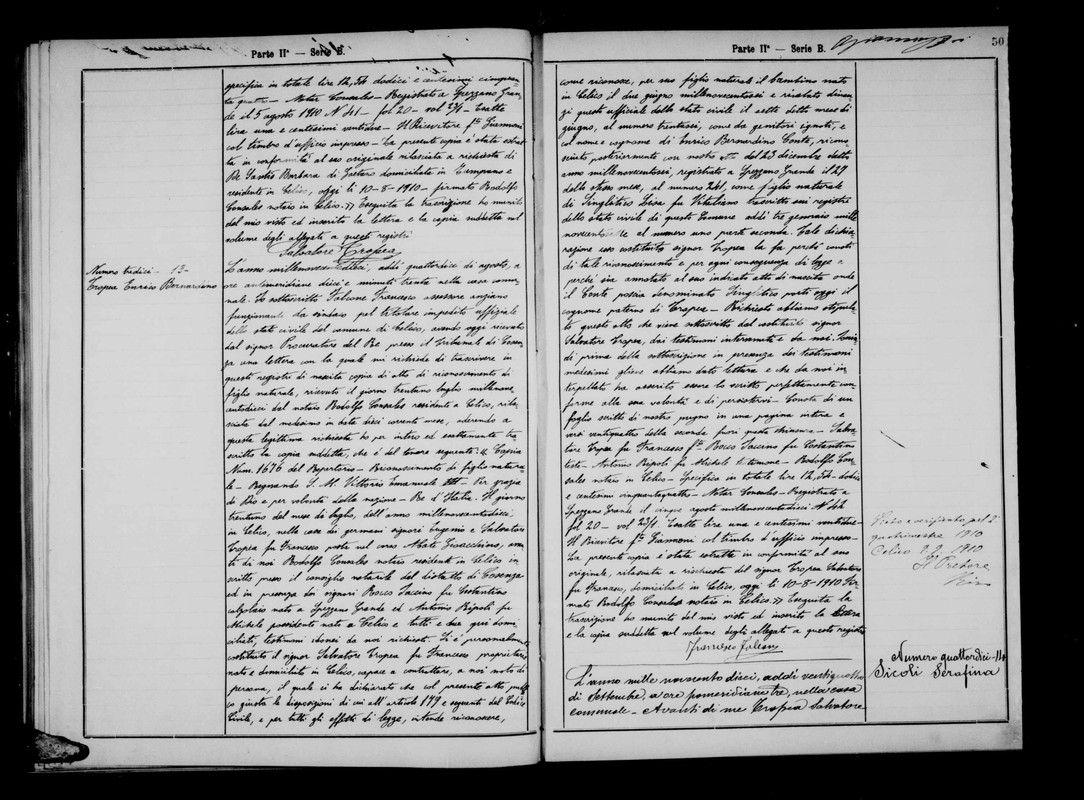 Parte IIª — Serie B.
specifica in totale lire 12,54 dodici e centesimi cinquan
ta quattro — Notar Consales — Registrato a Spezzano Gran
de il 5 agosto 1910 N 41 — fol 20 — vol 23/1 — Esatte
lire una e centesimi ventidue — Il Ricevitore fto Giannoni
col timbro d'ufficio impresso — La presente copia è stata estrat
ta in conformità al suo originale rilasciata a richiesta di
De Santis Barbara di Gaetano domiciliata in
residente in Celico, oggi li 10-8-1910 — firmato Rodolfo
Consales notaro in Celico. » Eseguita la trascrizione ho munito
del mio visto ed inserito la lettera e la copia suddetta nel
volume degli allegati a questi registri
Salvatore Tropea
Numero tredici — 13 —
Tropea Enrico Bernardino
L'anno millenovecentodieci, addì quattordici di agosto, a
ore antimeridiane dieci e minuti trenta nella casa comu
nale. Io sottoscritto Falcone Francesco assessore anziano
funzionante da sindaco pel titolare impedito uffiziale
dello stato civile del comune di Celico, avendo oggi ricevuto
dal signor Procuratore del Re presso il Tribunale di Cosen
za una lettera con la quale mi richiede di trascrivere in
questi registri di nascita copia di atto di riconoscimento di
figlio naturale, ricevuto il giorno trentuno luglio millenove
centodieci dal notaro Rodolfo Consales residente a Celico, rila
sciata dal medesimo in data dieci corrente mese, aderendo a
questa legittima richiesta ho per intero ed esattamente tra
scritto la copia suddetta, che è del tenore seguente: « Copia
Num. 1676 del Repertorio — Riconoscimento di figlio natura
le — Regnando S. M. Vittorio Emanuele III — Per grazia
di Dio e per volontà della nazione — Re d'Italia. Il giorno
trentuno del mese di luglio, dell'anno millenovecentodieci,
in Celico, nella casa dei germani signori Eugenio e Salvatore
Tropea fu Francesco posta nel corso Abate Gioacchino, avan
ti di noi Rodolfo Consales notaro residente in Celico in
scritto presso il consiglio notarile del distretto di Cosenza
ed in presenza dei signori Rocco Iaccino fu Costantino
calzolaio nato a Spezzano Grande ed Antonio Ripoli fu
Michele possidente nato a Celico e tutti e due qui domi
ciliati, testimoni idonei da noi richiesti. Si è personalmente
costituito il signor Salvatore Tropea fu Francesco proprietario,
nato e domiciliato in Celico, capace a contrattare, a noi noto di
persona, il quale ci ha dichiarato che col presente atto pubbli
co giusta le disposizioni di cui all'articolo 179 e seguenti del Codice
Civile, e per tutti gli effetti di legge, intende riconoscere,
Parte IIª — Serie B.
50
come riconosce, per suo figlio naturale il bambino nato
in Celico il due giugno millenovecentosei e rivelato dinan
zi questo ufficiale dello stato civile il sette detto mese di
giugno, al numero trentasei, come da genitori ignoti, e
col nome e cognome di Enrico Bernardino Conte, ricono
sciuto posteriormente con nostro atto del 23 dicembre detto
anno millenovecentosei, registrato a Spezzano Grande il 27
dello stesso mese, al numero 241, come figlio naturale
di Linglitico Lisa fu Vitaliano trascritto sui registri
dello stato civile di questo Comune addì tre gennaio mille
novecentosette al numero uno parte seconda. Tale dichia
razione esso costituito signor Tropea la fa perchè consti
di tale riconoscimento e per ogni conseguenza di legge e
perchè sia annotato al suo indicato atto di nascita onde
il Conte possia denominato porti oggi il
cognome paterno di Tropea — Richiesti abbiamo stipula
to questo atto che viene sottoscritto dal costituito signor
Salvatore Tropea, dai testimoni intervenuti e da noi.
di prima della sottoscrizione in presenza dei testimoni
medesimi gliene abbiamo dato lettura e che da noi in
terpellato ha asserito essere lo scritto perfettamente con
forme alla sua volontà e di persistervi. Consta di un
foglio scritto di nostro pugno in una pagina intera e
versi ventiquattro della seconda fuori questa chiusura — Salva
tore Tropea fu Francesco fto Rocco Iaccino fu Costantino
teste — Antonio Ripoli fu Michele testimone — Rodolfo Con
sales notaro in Celico — Specifica in totale lire 12,54 — dodici
e centesimi cinquantaquattro — Notar Consales — Registrato a
Spezzano Grande il cinque agosto millenovecentodieci N 42
fol 20 — vol 23/1. Esatte lire una e centesimi ventidue
Il Ricevitore fto Giannoni col timbro d'ufficio impresso —
La presente copia è stata estratta in conformità al suo
originale, rilasciata a richiesta del signor Tropea Salvatore
fu Francesco, domiciliato in Celico, oggi li 10-8-1910 Fir
mato Rodolfo Consales notaro in Celico. » Eseguita la
trascrizione ho munito del mio visto ed inserito la lettera
e la copia suddetta nel volume degli allegati a questo registro
Francesco Falcone
Visto e verificato pel 2º
quadrimestre 1910
Celico 9.9.1910
Il Pretore
Numero quattordici — 14
Sicoli Serafina
L'anno mille novecento dieci, addì ventiquattro
di Settembre, a ore pomeridiane tre, nella casa
comunale — Avanti di me Tropea Salvatore